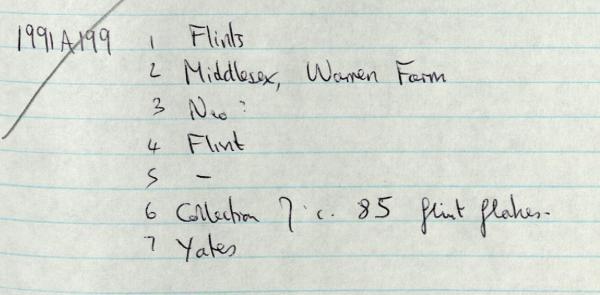 1991A199 1 Flints
2 Middlesex, Warren Farm
3 Neo?
4 Flint
5 -
6 Collection of c. 85 flint flakes.
7 Yates